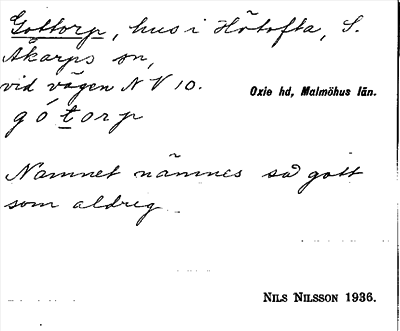 Gottorp, hus i Hötofta, S.
Åkarps sn,
vid vägen N V 10.
Oxie hd, Malmöhus län.
gótorp
Namnet nämnes så gott
som aldrig.
NILS NILSSON 1936.